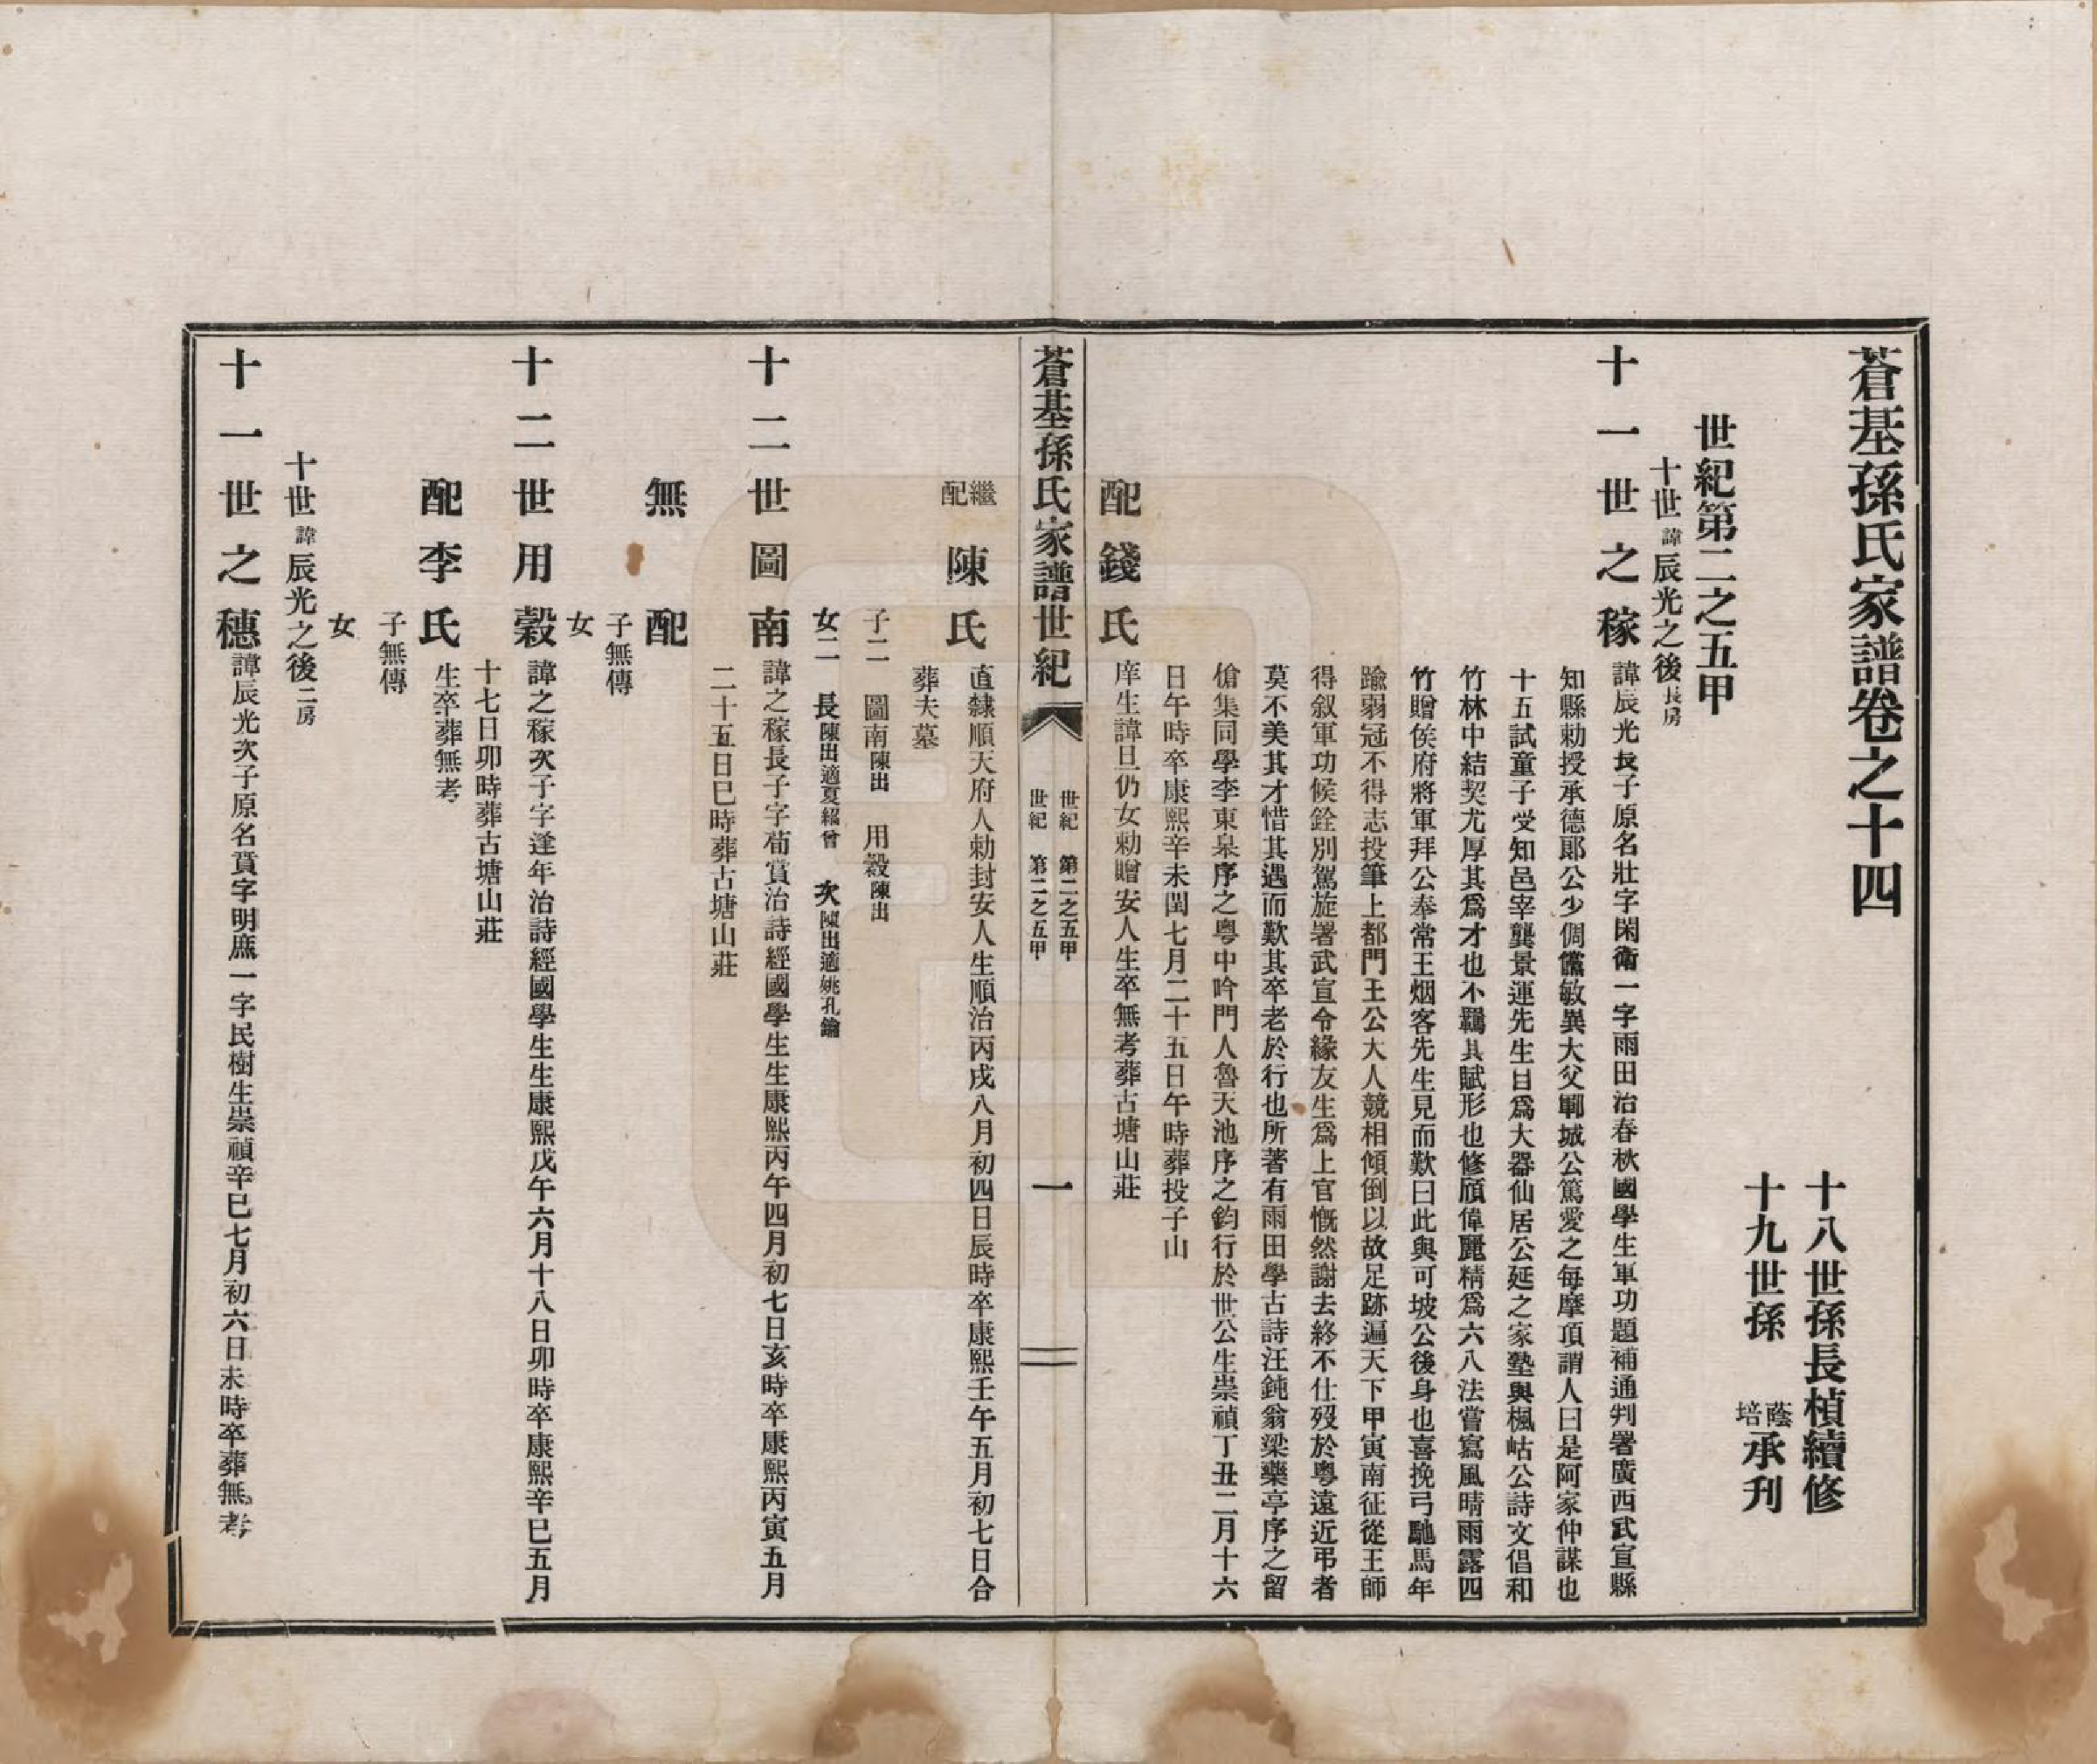 蒼基孫氏家譜卷之十四
十八世孫長楨續修
十九世孫蔭培承刋
世紀第二之五甲
十世諱辰光之後長房
十一世之稼諱辰光長子原名壯字閑衛一字雨田治春秋國學生軍功題補通判署廣西武宣縣
知縣勅授承德郞公少倜儻敏異大父鄆城公篤愛之每摩頂謂人曰是阿家仲謀也
十五試童子受知邑宰龔景運先生目爲大器仙居公延之家塾與楓岵公詩文倡和
竹林中結契尤厚其爲才也不羈其賦形也修頎偉麗精爲六八法嘗寫風晴雨露四
竹贈侯府將軍拜公奉常王烟客先生見而歎曰此與可坡公後身也喜挽弓馳馬年
踰弱冠不得志投筆上都門王公大人競相傾倒以故足跡遍天下甲寅南征從王師
得叙軍功候銓別駕旋署武宣令緣友生爲上官慨然謝去終不仕歿於粤遠近弔者
莫不美其才惜其遇而歎其卒老於行也所著有雨田學古詩汪鈍翁梁藥亭序之留
傖集同學李東皐序之粤中吟門人魯天池序之鈞行於世公生崇禎丁丑二月十六
日午時卒康熙辛未閏七月二十五日午時葬投子山
配錢氏庠生諱旦仍女勅贈安人生卒無考葬古塘山莊
蒼基孫氏家譜世紀
世紀 第二之五甲
世紀 第二之五甲
一
繼配陳氏直隸順天府人勅封安人生順治丙戌八月初四日辰時卒康熙壬午五月初七日合
葬夫墓
子二 圖南陳出 用穀陳出
女二 長陳出適夏紹曾 次陳出適姚孔鑰
十二世圖南諱之稼長子字荀賞治詩經國學生生康熙丙午四月初七日亥時卒康熙丙寅五月
二十五日巳時葬古塘山莊
無配
子無傳
女
十二世用穀諱之稼次子字逢年治詩經國學生生康熙戊午六月十八日卯時卒康熙辛巳五月
十七日卯時葬古塘山莊
配李氏生卒葬無考
子無傳
女
十世諱辰光之後二房
十一世之穗諱辰光次子原名賁字明庶一字民樹生崇禎辛巳七月初六日未時卒葬無考